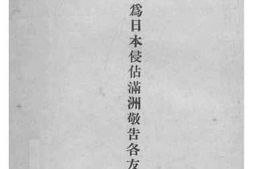 爲日本侵佔滿洲敬告各友